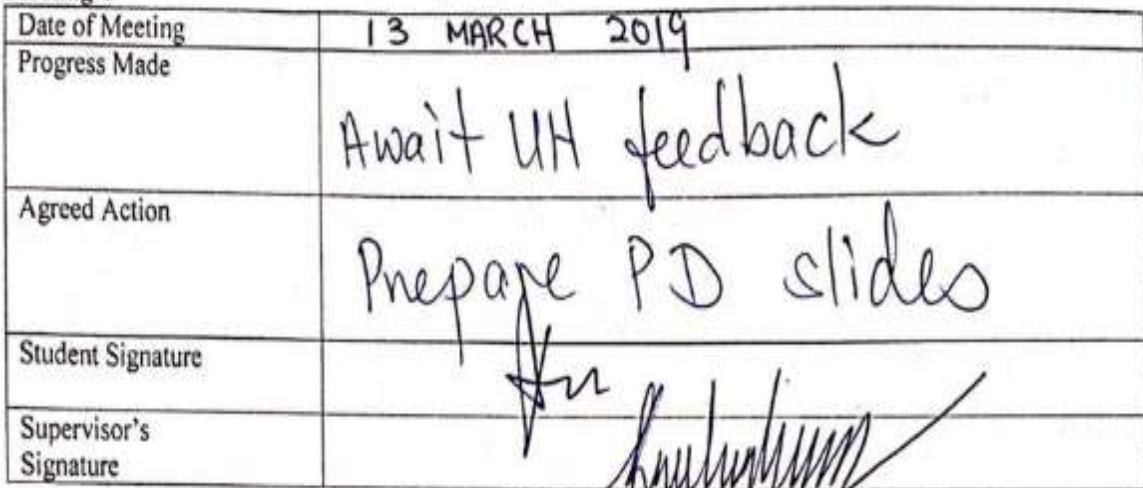 Date of Meeting 13 MARCH 2019
Progress Made
Await UH feedback
Agreed Action
Prepare PD slides
Student Signature
Supervisor's
Signature